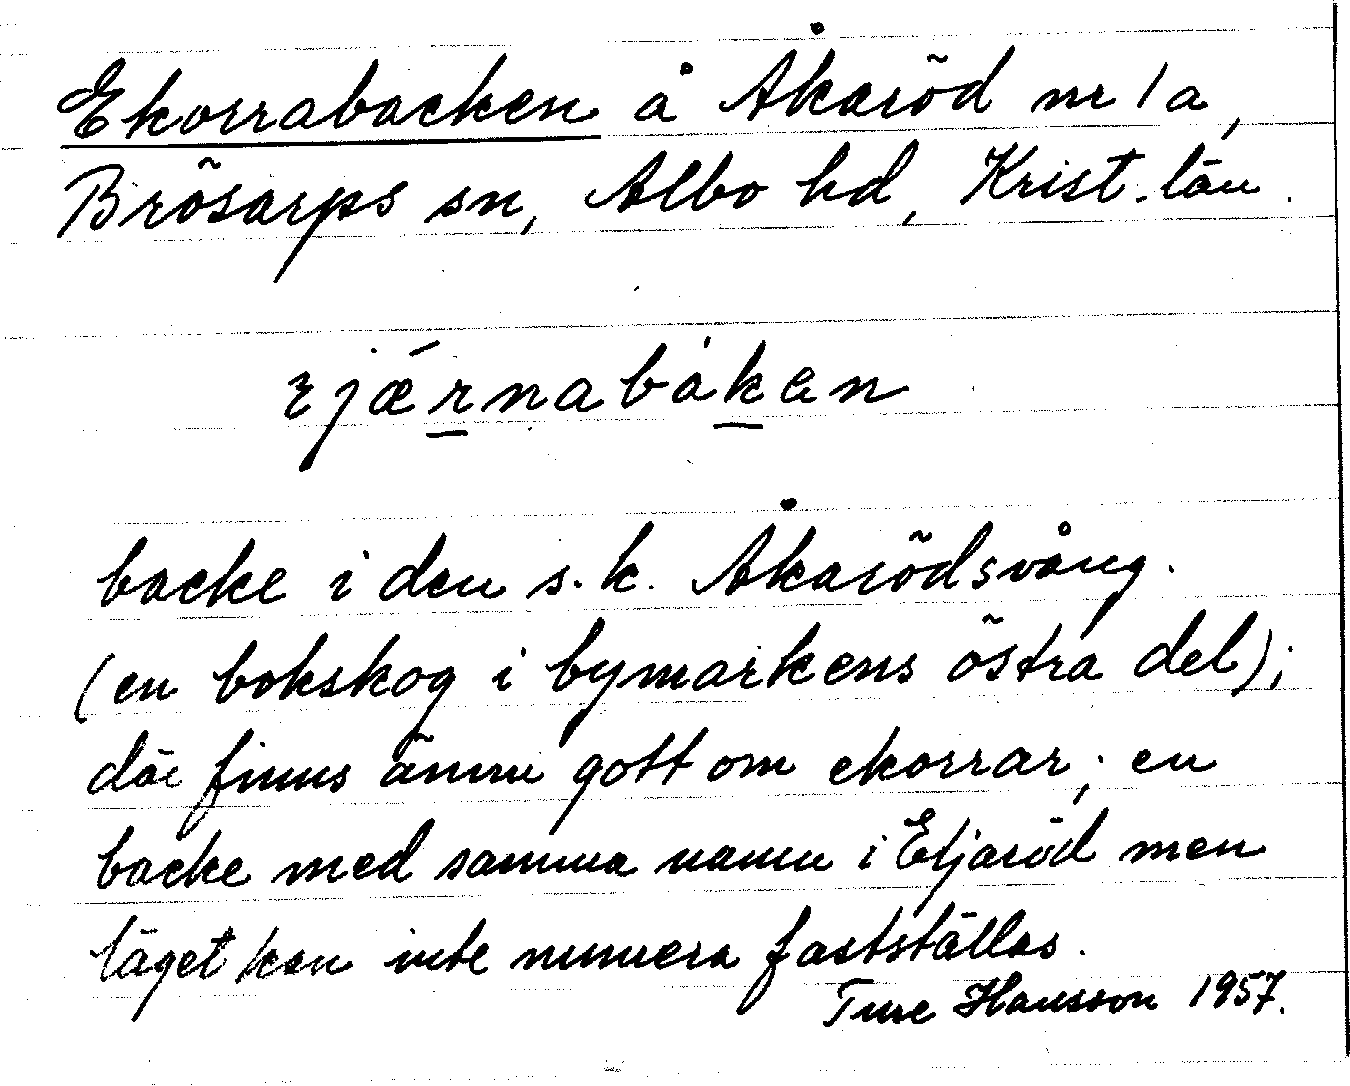 Ekorrabacken å Åkaröd nr 1a,
Brösarps sn, Albo hd, Krist. län.
ɛjǽrnabàkɛn
backe i den s.k. Åkarödsvång.
(en bokskog i bymarkens östra del);
där finns ännu gott om ekorrar; en
backe med samma namn i Eljaröd men
läget kan inte numera fastställas.
Ture Hansson 1957.